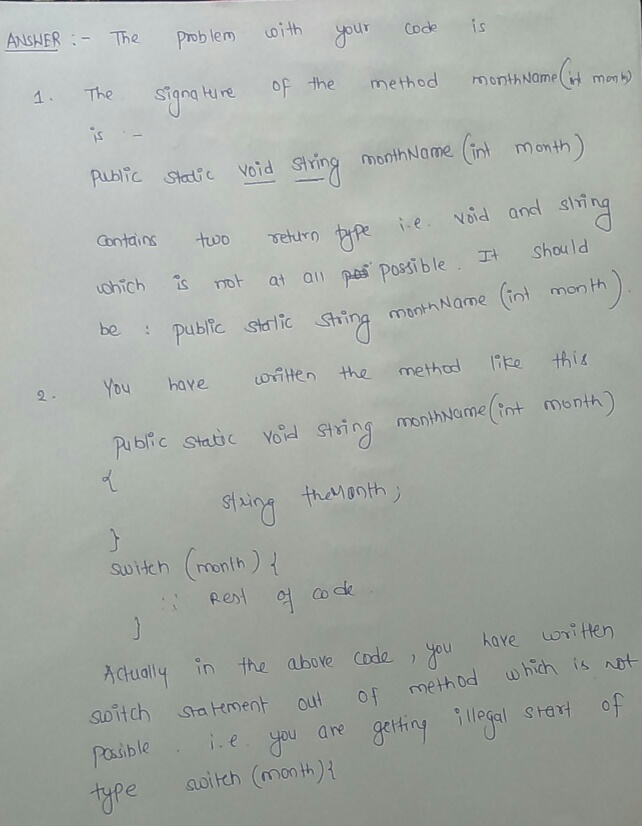 ANSWER :- The problem with your code is
1. The signature of the method monthName(int month)
is :-
public static void string monthName (int month)
contains two return type i.e. void and string
which is not at all possible. It should
be : public static string monthName (int month).
2. You have written the method like this
public static void string monthName(int month)
{
string theMonth;
}
switch (month) {
:: Rest of code.
}
Actually in the above code, you have written
switch statement out of method which is not
possible. i.e. you are getting illegal start of
type switch (month){